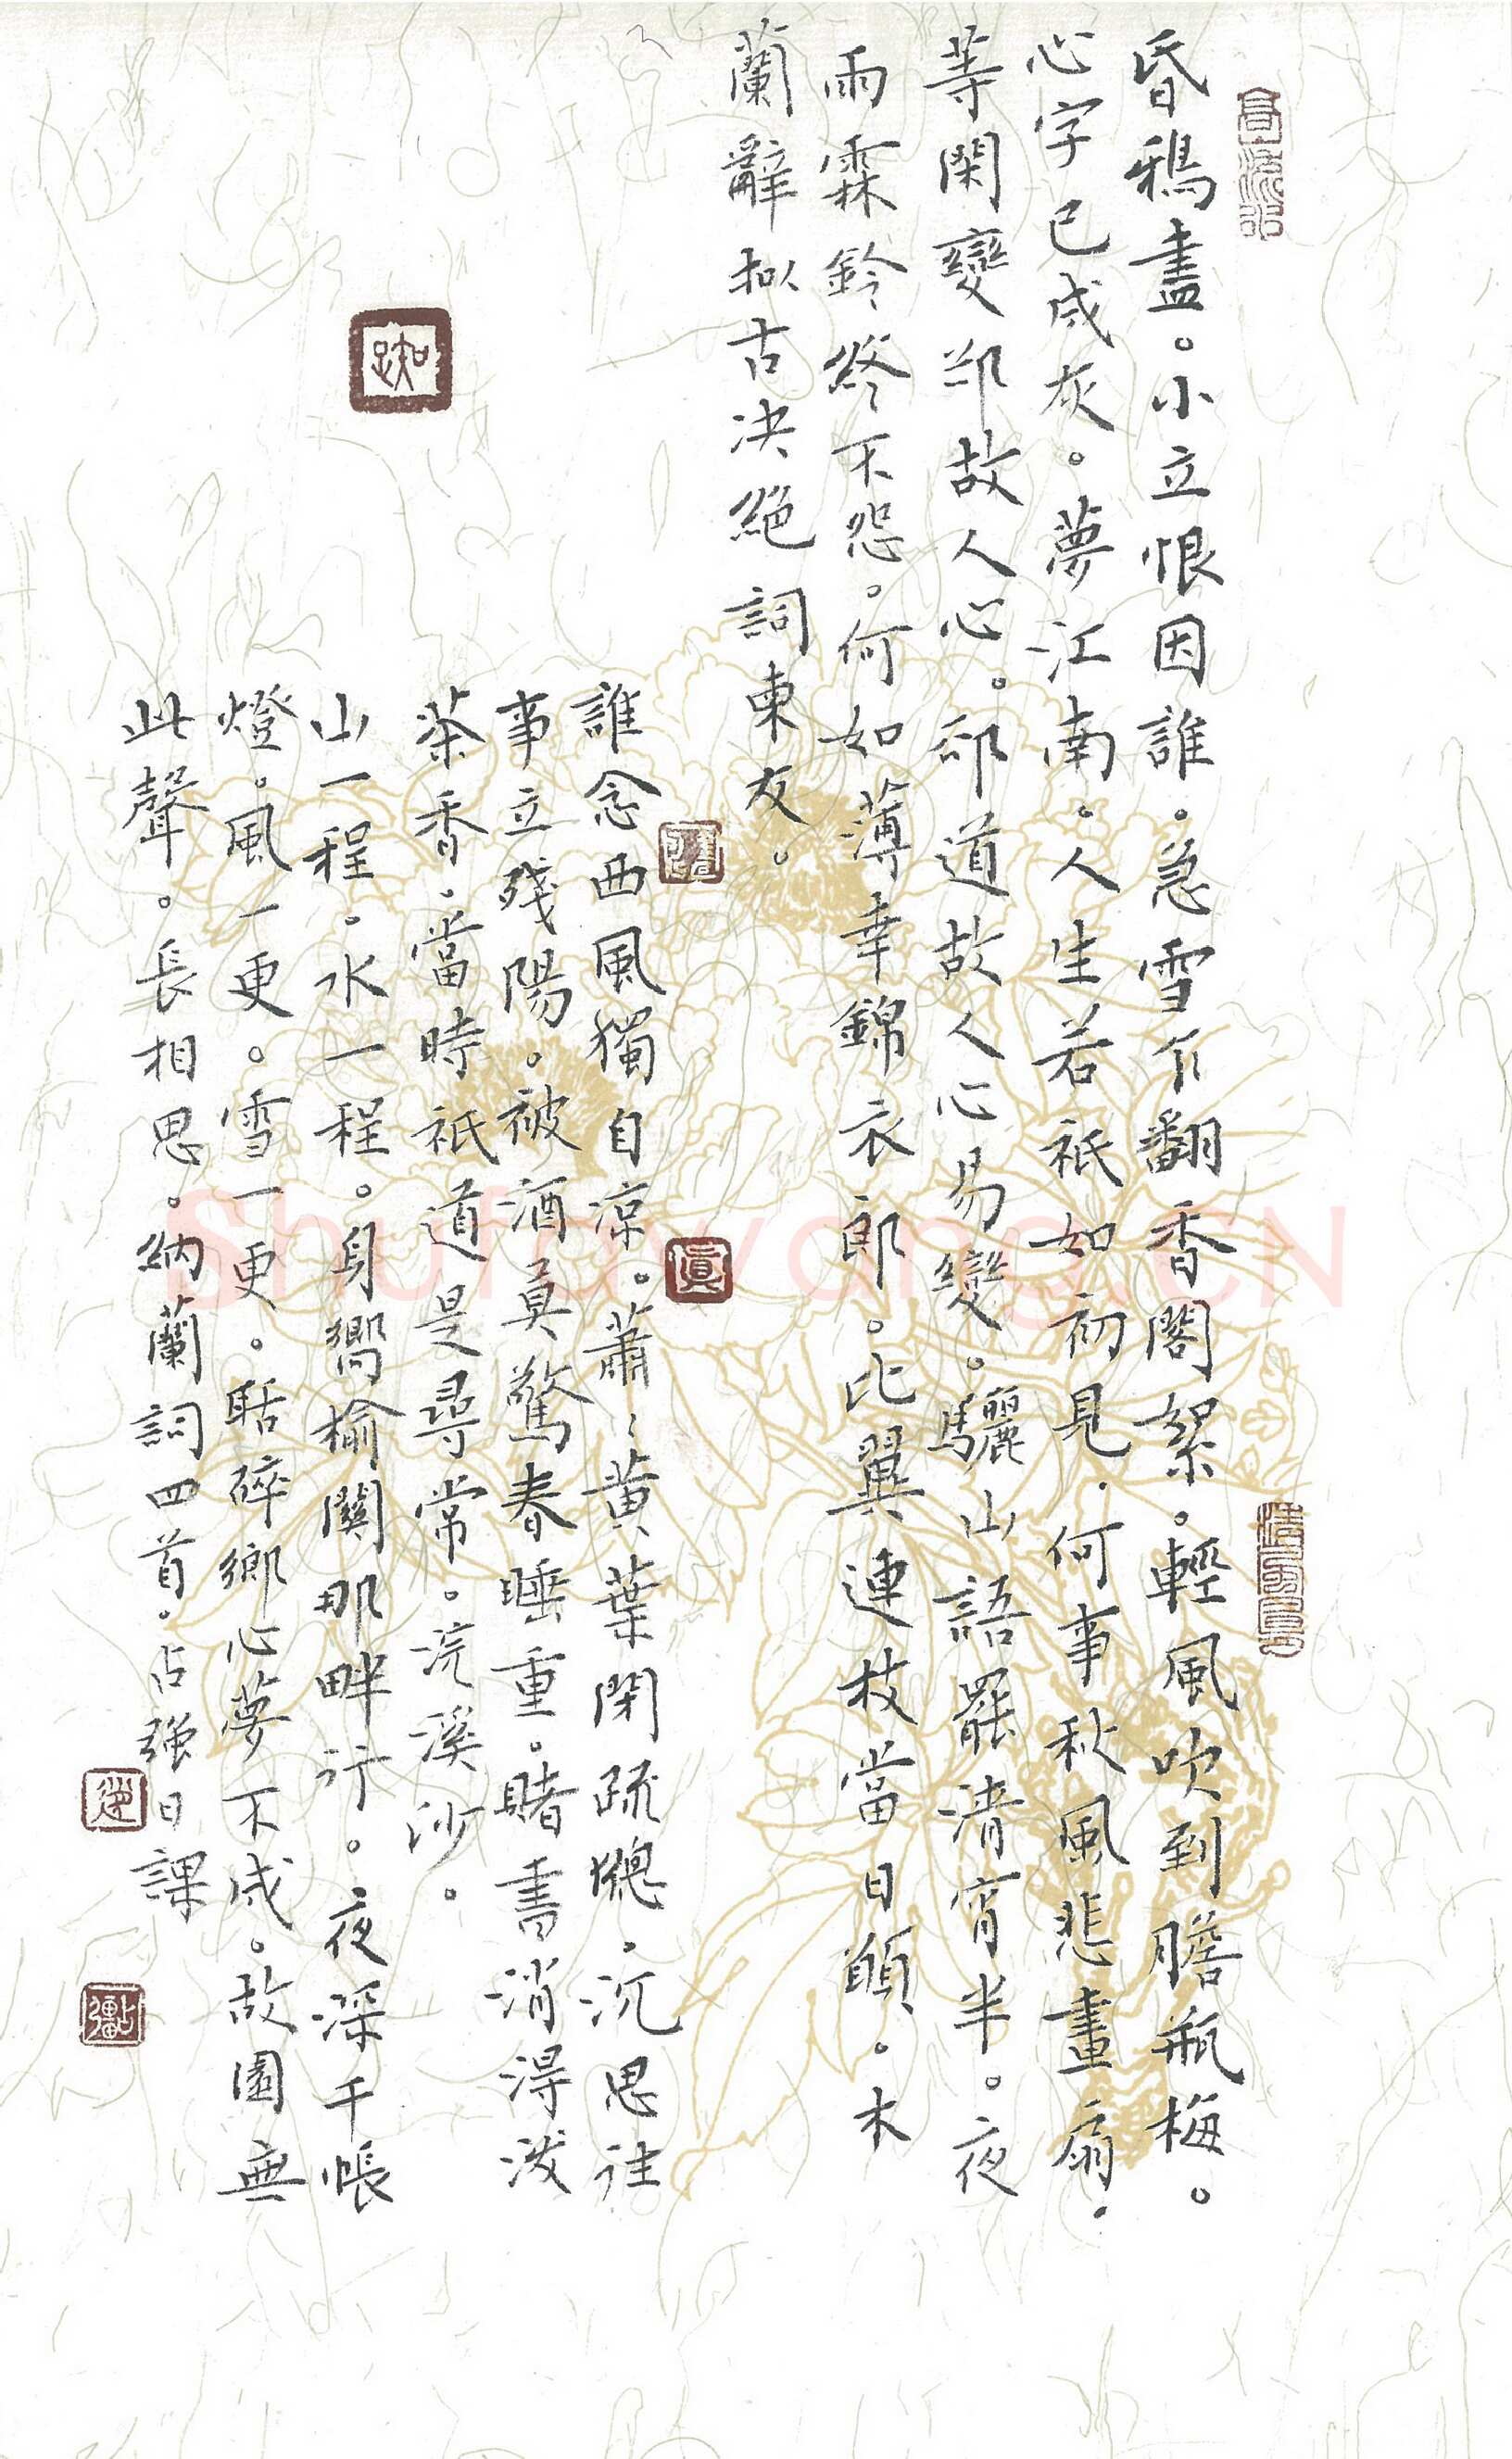 昏鴉盡。小立恨因誰。急雪乍翻香閣絮。輕風吹到膽瓶梅。
心字已成灰。夢江南。人生若衹如初見。何事秋風悲畫扇。
等閑變却故人心。却道故人心易變。驪山語罷清宵半。夜
雨霖鈴終不怨。何如薄幸錦衣郎。比翼連枝當日願。木
蘭辭拟古决絕詞柬友。
誰念西風獨自涼。蕭〻黃葉閉疏窗。沉思往
事立殘陽。被酒莫驚春睡重。賭書消得潑
茶香。當時衹道是尋常。浣溪沙。
山一程。水一程。身嚮榆關那畔行。夜深千帳
燈。風一更。雪一更。聒碎鄉心夢不成。故園無
此聲。長相思。納蘭詞四首。占强日課
知足
真
占彊
Shufawang.CN